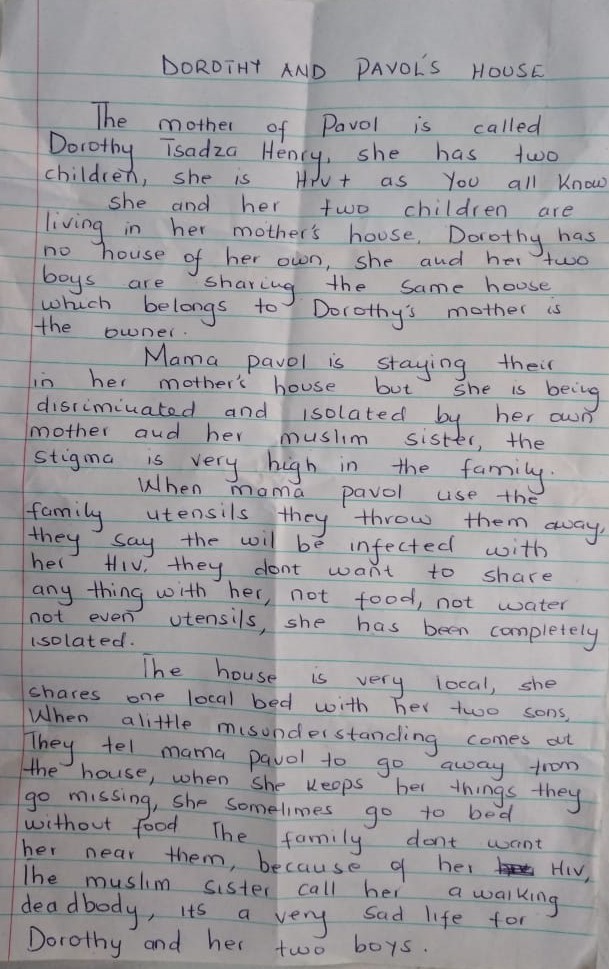 DOROTHY AND PAVOL'S HOUSE
The mother of Pavol is called
Dorothy Tsadza Henry, she has two
children, she is HIV+ as You all Know
she and her two children are
living in her mother's house. Dorothy has
no house of her own, she and her two
boys are sharing the same house
which belongs to Dorothy's mother is
the owner.
Mama pavol is staying their
in her mother's house but she is being
discriminated and isolated by her own
mother and her muslim sister, the
stigma is very high in the family.
When mama pavol use the
family utensils they throw them away,
they say the wil be infected with
her HIV, they dont want to share
any thing with her, not food, not water
not even utensils, she has been completely
isolated.
The house is very local, she
shares one local bed with her two sons,
When alittle misunderstanding comes out
They tel mama pavol to go away from
the house, when she keeps her things they
go missing, she sometimes go to bed
without food The family dont want
her near them, because of her HIV,
The muslim sister call her a walking
deadbody, its a very sad life for
Dorothy and her two boys.